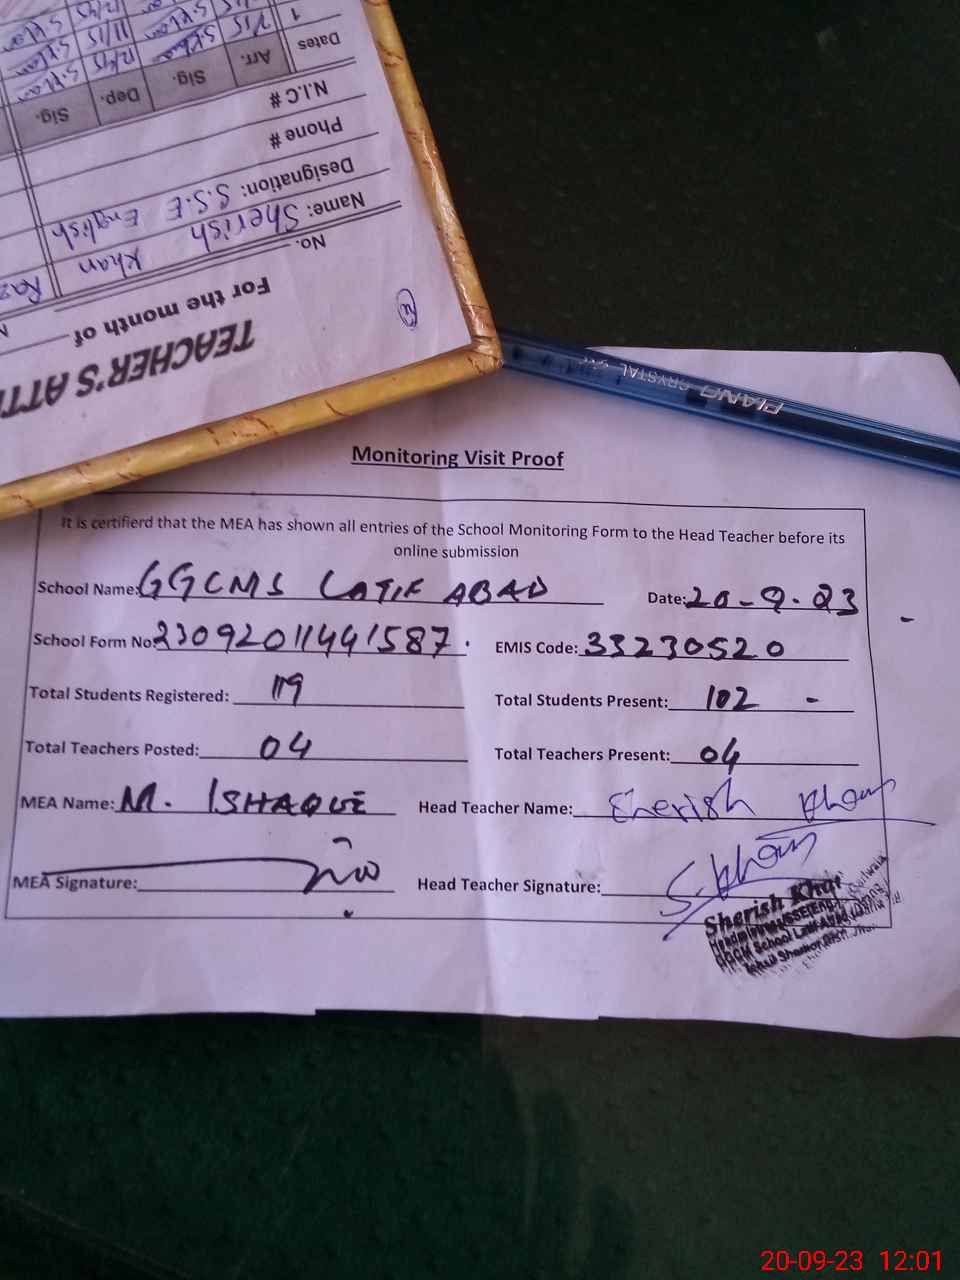 TEACHER'S ATT
For the month of
No.
Name: Sherish Khan
Designation: S.S.E English
Phone #
N.I.C #
Dates Arr. Sig. Dep. Sig.
1
PIANO CRYSTAL
Monitoring Visit Proof
It is certifierd that the MEA has shown all entries of the School Monitoring Form to the Head Teacher before its
online submission
School Name: GGCMS LATIF ABAD Date: 20-9-23
School Form No: 23092011441587. EMIS Code: 33230520
Total Students Registered: 119 Total Students Present: 102 -
Total Teachers Posted: 04 Total Teachers Present: 04
MEA Name: M. ISHAQUE Head Teacher Name: Sherish Khan
MEA Signature: Head Teacher Signature: S.khan
Sherish Khan
20-09-23 12:01